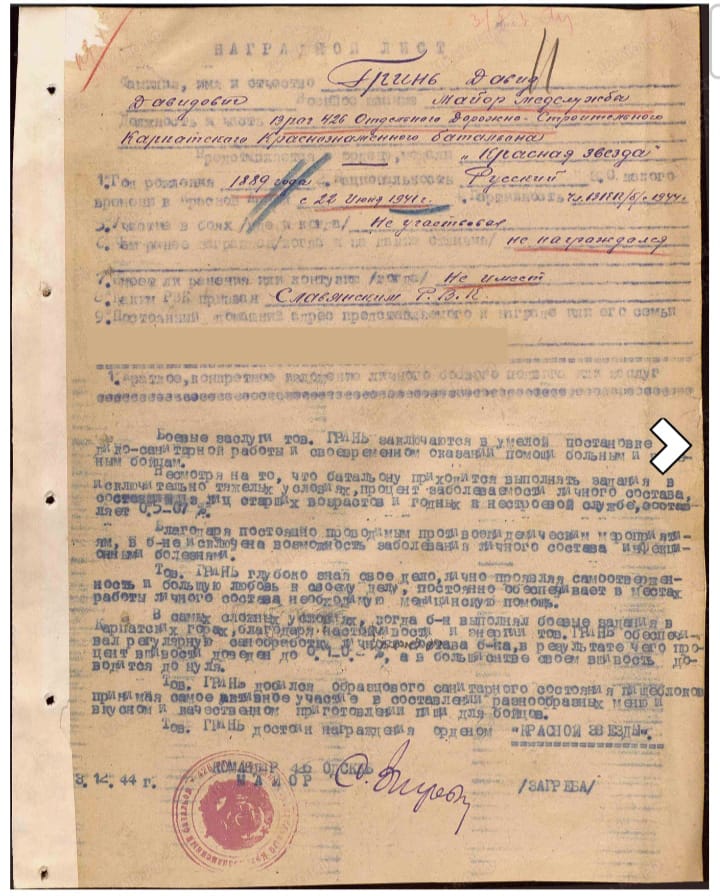 НАГРАДНОЙ ЛИСТ
Фамилия, имя и отчество Гринь Давид
Давидович Военное звание Майор медслужбы
Должность и часть Врач 426 Отдельного Дорожно-Строительного
Карпатского Краснознаменного батальона
Представляется ордену, медали „Красная Звезда"
1. Год рождения 1889 года 2. Национальность Русский 3. С какого
времени в Красной с 22 Июня 1941 г. 4. Партийность чл. ВКП/б/с 1944 г.
5. Участие в боях /где и когда/ Не участвовал
6. Чем ранее награжден /когда и за какие отличия/ не награждался
7. Имеет ли ранения или контузии /когда/ Не имеет
8. Каким РВК призван Славянским Р.В.К.
9. Постоянный домашний адрес представляемого к награде или его семьи
1. Краткое, конкретное изложение личного боевого подвига или заслуг
Боевые заслуги тов. ГРИНЬ заключаются в умелой постановке
дико-санитарной работы и своевременном оказании помощи больным и
ным бойцам.
Несмотря на то, что батальону приходится выполнять задания в
исключительно тяжелых условиях, процент заболеваемости личного состава,
состоящий из лиц старших возрастов и годных к нестроевой службе, состав-
ляет 0,5-07 %.
Благодаря постоянно проводимым противоэпидемическим мероприяти-
ям, в б-не исключена возможность заболевания личного состава инфекци-
онными болезнями.
Тов. ГРИНЬ глубоко зная свое дело, лично проявляя самоотвержен-
ность и большую любовь к своему делу, постоянно обеспечивает в местах
работы личного состава необходимую медицинскую помощь.
В самых сложных условиях, когда б-н выполнял боевые задания в
Карпатских горах, благодаря настойчивости и энергии тов. ГРИНЬ обеспечи-
вал регулярную санобработку личного состава б-на, в результате чего про-
цент вшивости доведен до %, а в большинстве своем вшивость до-
водится до нуля.
Тов. ГРИНЬ добился образцового санитарного состояния пищеблоков
принимая самое активное участие в составлении разнообразных меню и
вкусном и качественном приготовлении пищи для бойцов.
Тов. ГРИНЬ достоин награждения орденом "КРАСНОЙ ЗВЕЗДЫ".
КОМАНДИР 426 ОДСКБ
3.12.44 г. МАЙОР /ЗАГРЕБА/